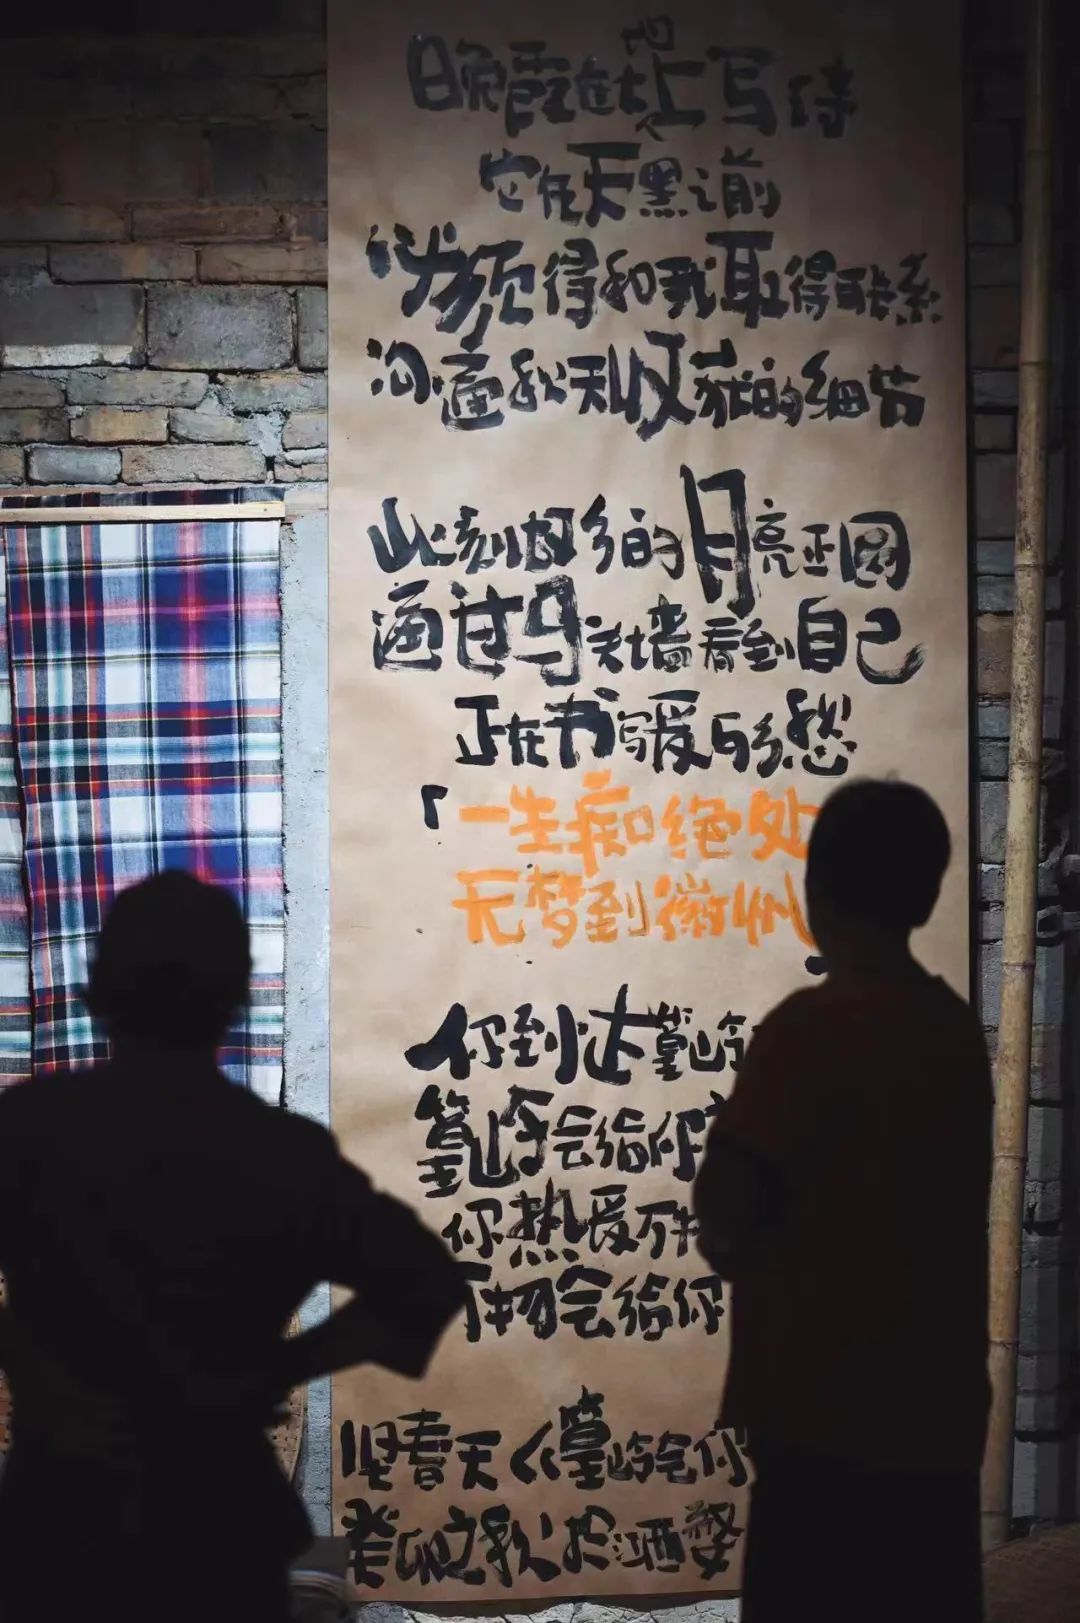 晚霞在大地上写诗
它在天黑之前
必须得和我取得联系
沟通秋天收获的细节
此刻故乡的月亮正圆
通过马头墙看到自己
正在书写爱与乡愁
「一生痴绝处
无梦到徽州」
你到达篁岭
篁岭会给你
你热爱万物
万物会给你
春天 篁岭 你
癸卯之秋 于江西婺